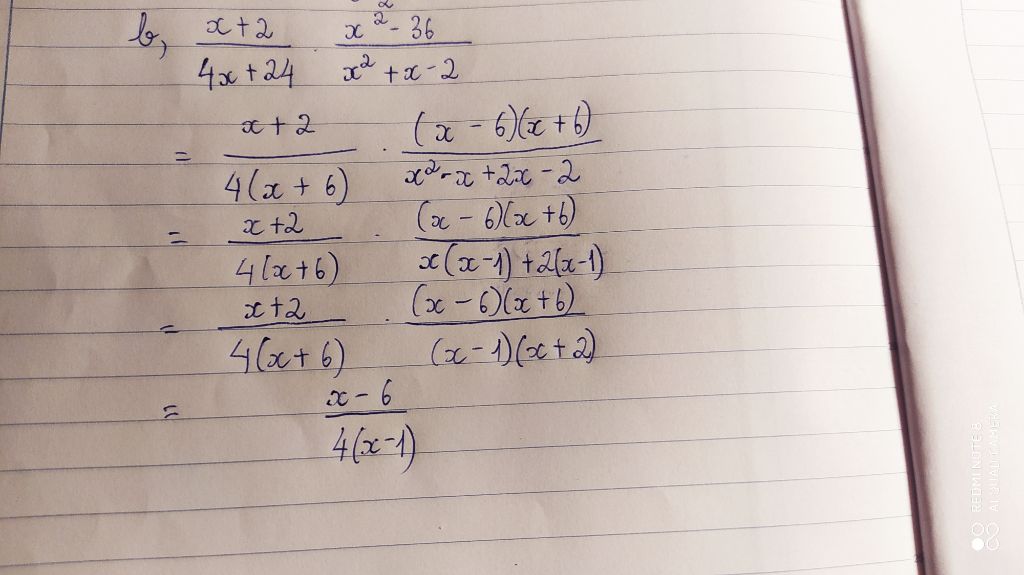 b, (x+2)/(4x+24) . (x²-36)/(x²+x-2)
= (x+2)/(4(x+6)) . ((x-6)(x+6))/(x²-x+2x-2)
= (x+2)/(4(x+6)) . ((x-6)(x+6))/(x(x-1)+2(x-1))
= (x+2)/(4(x+6)) . ((x-6)(x+6))/((x-1)(x+2))
= (x-6)/(4(x-1))
REDMI NOTE 8
AI QUAD CAMERA